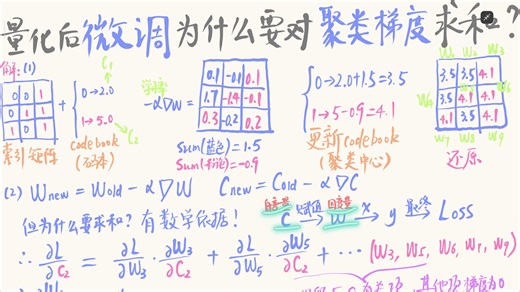 量化后微调为什么要对聚类梯度求和?
解:(1)
C₁
0 0 1
1 0 0
0 1 0
索引矩阵
+
0→2.0
1→5.0
C₂
codebook
(码本)
学习率
-α∇W =
0.1 -0.1 0.1
1.7 -1.4 -0.1
0.3 -0.2 0.2
Sum(蓝色)=1.5
Sum(粉色)=-0.9
0→2.0+1.5=3.5
1→5-0.9=4.1
更新codebook
(聚类中心)
W₁ W₂ W₃
3.5 3.5 4.1
W₄ 3.5 4.1 4.1 W₆
4.1 3.5 4.1
W₇ W₈ W₉
还原
(2) Wnew = Wold - α∇W Cnew = Cold - α∇C
但为什么要求和?有数学依据!
自变量 赋值 因变量
C → W →x y 最终 Loss
∴ ∂L/∂C₂ = ∂L/∂W₃ · ∂W₃/∂C₂ + ∂L/∂W₅ · ∂W₅/∂C₂ + ··· (W₃, W₅, W₆, W₇, W₉)
其他项梯度为0